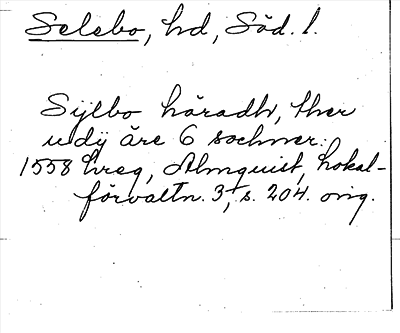 Selebo, hd, Söd. l.
Sijlbo häradh, ther
udij äre 6 sochner.
1558 hreg, Almquist, Lokal-
förvaltn. 3, s. 204. orig.